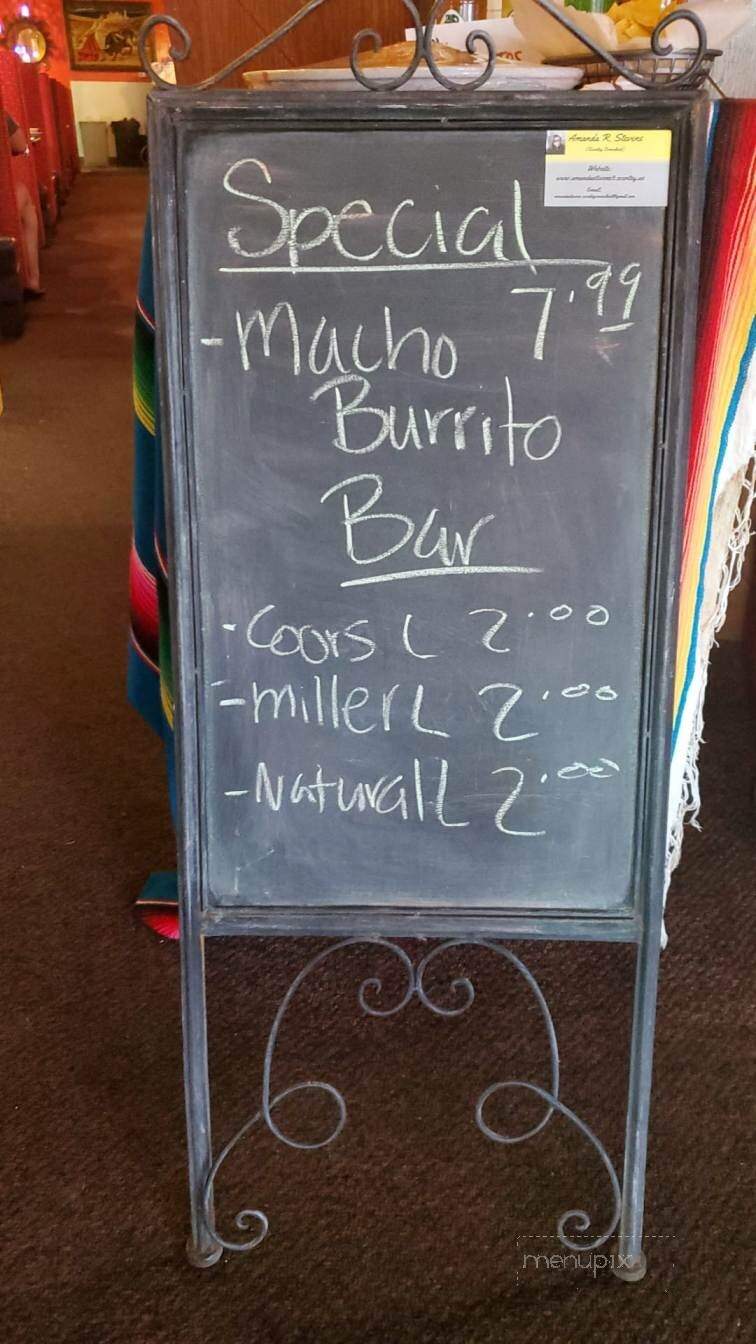 Amanda R. Stevens
Website:
Email:
Special
- Macho 7.99
Burrito
Bar
- Coors L 2.00
- Miller L 2.00
- Natural L 2.00
menupix